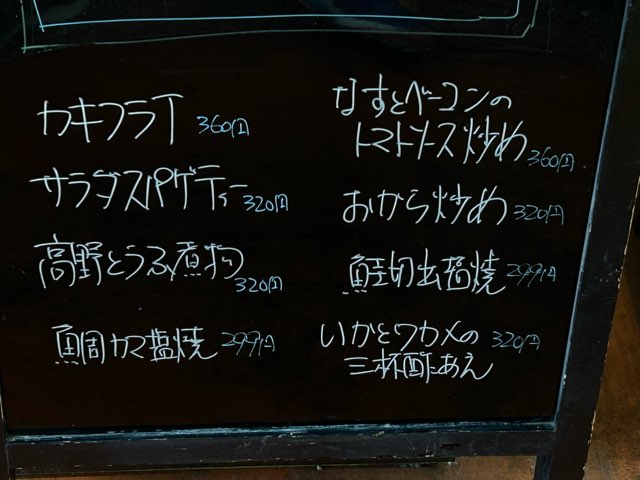 カキフライ 360円
サラダスパゲティー 320円
高野とうふ煮物 320円
鯛カマ塩焼 299円
なすとベーコンの
トマトソース炒め 360円
おから炒め 320円
鮭切出塩焼 299円
いかとワカメの 320円
三杯酢あえ